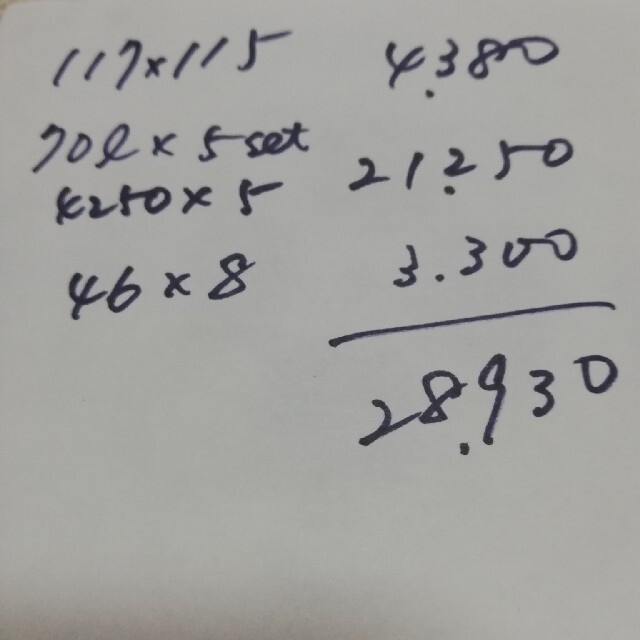 117×115 4.380
70l × 5 set
4250 × 5 21.250
46 × 8 3.300
28.930